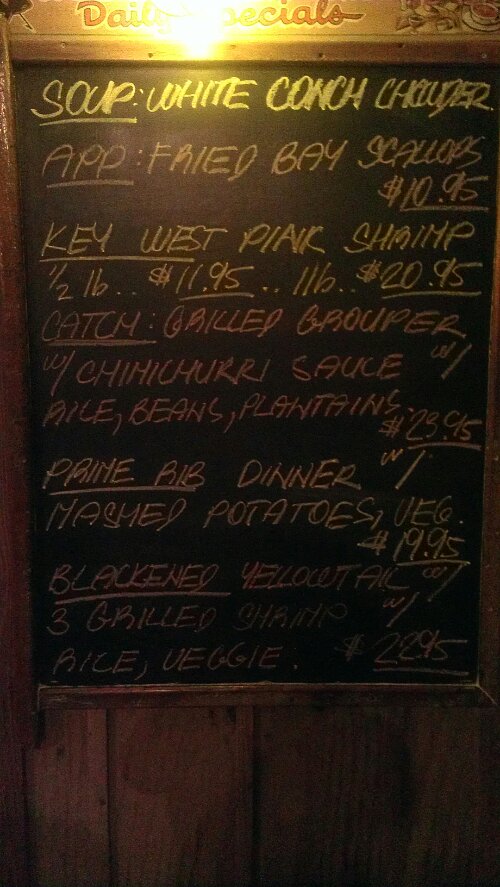 Daily Specials
SOUP: WHITE CONCH CHOWDER
APP: FRIED BAY SCALLOPS
$10.95
KEY WEST PINK SHRIMP
1/2 lb.. $11.95.. 1lb.. $20.95
CATCH: GRILLED GROUPER
w/ CHIMICHURRI SAUCE w/
RICE, BEANS, PLANTAINS.
$23.95
PRIME RIB DINNER w/
MASHED POTATOES, VEG.
$19.95
BLACKENED YELLOWTAIL w/
3 GRILLED SHRIMP w/
RICE, VEGGIE. $22.95